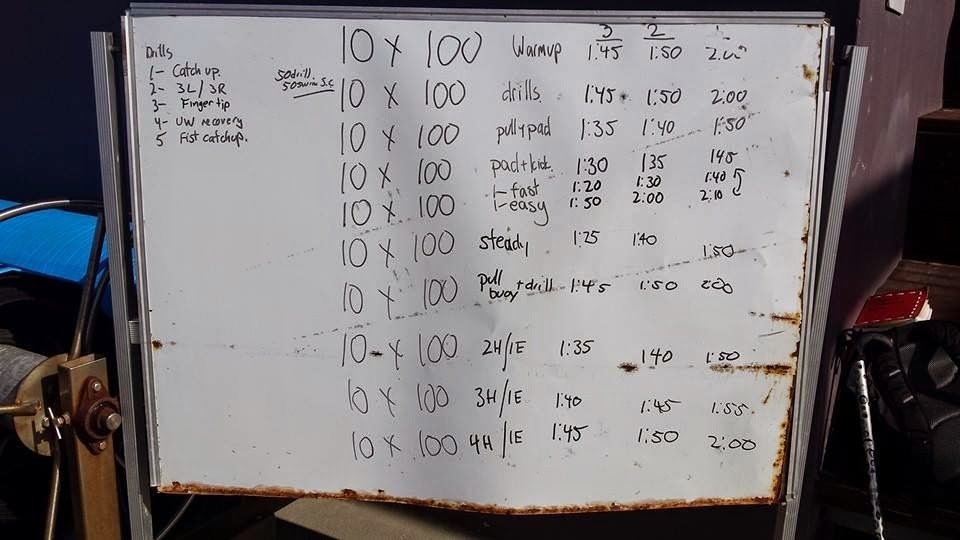 Drills
1- Catch up.
2- 3L/3R
3- Finger tip
4- UW recovery
5 Fist catchup.
50 drill
50 swim S.C
3 2 1
10 x 100 Warmup 1:45 1:50 2:00
10 x 100 drills. 1:45 1:50 2:00
10 x 100 pull+pad 1:35 1:40 1:50
10 x 100 pad+kick 1:30 135 145
1-fast 1:20 1:30 1:40
10 x 100 1-easy 1:50 2:00 2:10
10 x 100 steady 1:25 1:40 1:50
10 x 100 pull buoy + drill 1:45 1:50 200
10 x 100 2H/1E 1:35 140 1:50
10 x 100 3H/1E 1:40 1:45 1:55
10 x 100 4H/1E 1:45 1:50 2:00